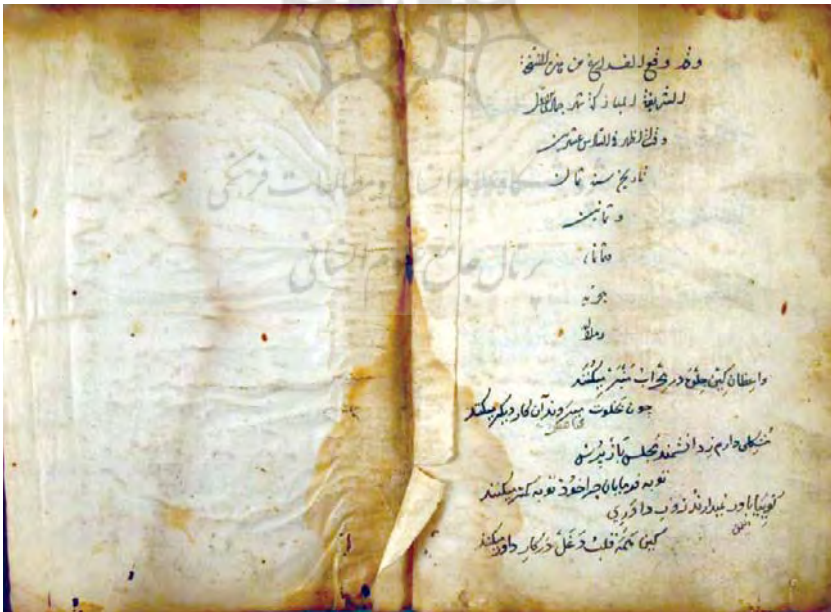 وقد وقع الفراغ من هذه النسخة
الشريفة المباركة شهر جمادی الاول
وقت الظهر فی الثلاث عشرین
تاریخ سنه ثمان
و ثمانین
و ثمان
مایه
هجریه
واعظان کین جلوه در محراب و منبر میکنند
چون بخلوت میروند آن کار دیگر میکنند
مشکلی دارم ز دانشمند مجلس باز پرس
توبه فرمایان چرا خود توبه کمتر میکنند
گوییا باور نمیدارند روز داوری
کین همه قلب و دغل در کار داور میکنند
پژوهشگاه علوم انسانی و مطالعات فرهنگی
پرتال جامع علوم انسانی